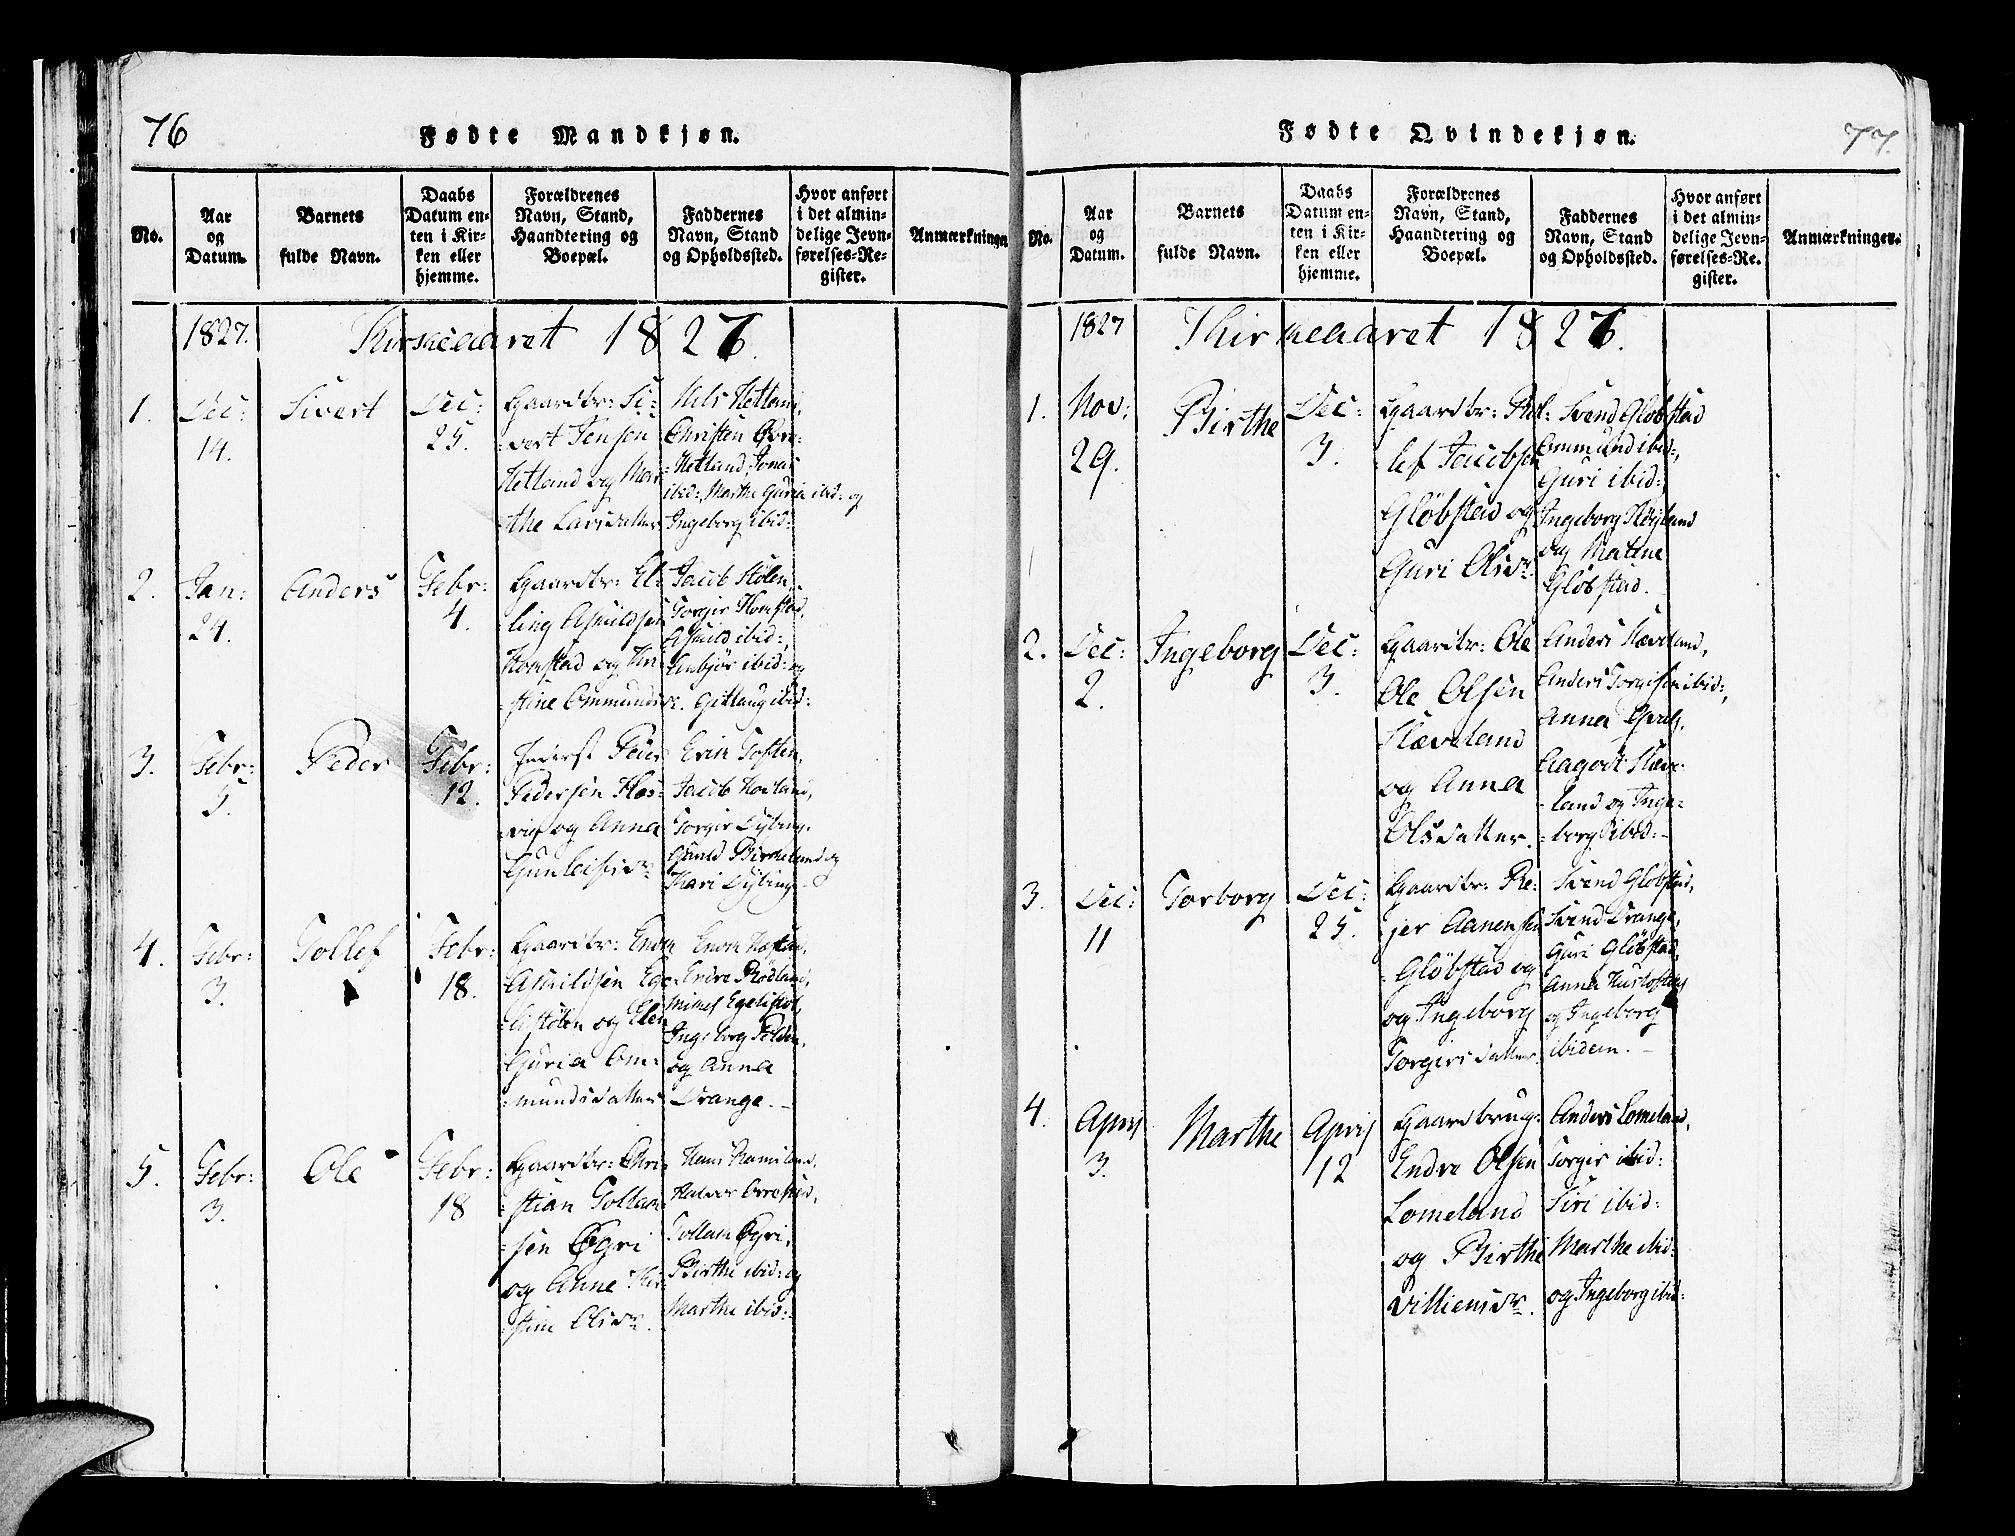 76
Fødte Mandkjøn.
No.
Aar
og
Datum.
Barnets
fulde Navn.
Daabs
Datum en-
ten i Kir-
ken eller
hjemme.
Forældrenes
Navn, Stand,
Haandtering og
Boepæl.
Faddernes
Navn, Stand
og Opholdssted.
Hvor anført
i det almin-
delige Jevn-
førelses-Re-
gister.
Anmærkninger
1827.
Kirkeaaret 1827.
1.
Dec:
14.
Sivert
Dec:
25.
Gaardbr: Si-
:vert Jensen
Hetland og Mar-
:the Larsdatter
Nils Hetland,
Christen Øvre-
:Hetland, Jonas
ibid:, Marthe Guria ibid: og
Ingeborg ibid:
2.
Jan:
24.
Anders
Febr:
4.
Gaardbr: El-
:ling Asuldsen
Homstad og Kir-
:stine Ommundsdr.
Jacob Stølen,
Torgir Homstad,
Asuld ibid:,
Anbjør ibid: og
Gitlaug ibid:
3.
Febr:
5.
Peder
Febr:
12.
Inderst Peder
Pedersen Has-
:vig og Anna
Gunleifsdr
Erik Tosten,
Jacob Hovland,
Torgir Dybing,
Birkeland og
Kari Dybing
4.
Febr:
3.
Tollef
Febr:
18.
Gaardbr: Enok
Asuildsen Ege-
:listølen og Elen
Guria Om-
:mundsdatter
Endre Rødland,
Ingeborg
og Anna
Drange.
5.
Febr:
3.
Ole
Febr:
18
Gaardbr: Chri-
:stian Tollak-
:sen Øgri
og Anne Kir-
:stine Olsdr.
Hans Ramsland,
Halvor Orrestad,
Tollak Øgri,
Birthe ibid: og
Marthe ibid:
77.
Fødte Qvindekjøn.
No.
Aar
og
Datum.
Barnets
fulde Navn.
Daabs
Datum en-
ten i Kir-
ken eller
hjemme.
Forældrenes
Navn, Stand,
Haandtering og
Boepæl.
Faddernes
Navn, Stand
og Opholdssted.
Hvor anført
i det almin-
delige Jevn-
førelses-Re-
gister.
Anmærkninger.
1827
Kirkeaaret 1827.
1.
Nov:
29.
Birthe
Dec:
3.
Gaardbr: Rol-
:lef Jacobsen
Gløbstad og
Guri Olsdr.
Svend Gløbstad
Ommund ibid:,
Guri ibid:
Ingeborg Høyland
og Malene
Gløbstad.
2.
Dec:
2.
Ingeborg
Dec:
3.
Gaardbr: Ole
Ole Olsen
Skæveland
og Anna
Olsdatter.
Anders Skæveland,
Anders Torgisen ibid:,
Anna
Aagodt Skæve-
:land og Inge-
:borg ibid:
3.
Dec:
11
Torborg
Dec:
25.
Gaardbr: Re-
:jer Aanensen
Gløbstad og
og Ingeborg
Torgirsdatter.
Svend Gløbstad,
Svend Drange,
Guri Gløbstad,
Anna
og Ingeborg
ibidem.
4.
April
3.
Marthe
April
12
Gaardbrug:
Endre Olsen
Lomeland
og Birthe
Villiemsdr.
Anders Lomeland,
Torgir ibid:
Siri ibid:
Marthe ibid:
og Ingeborg ibid: